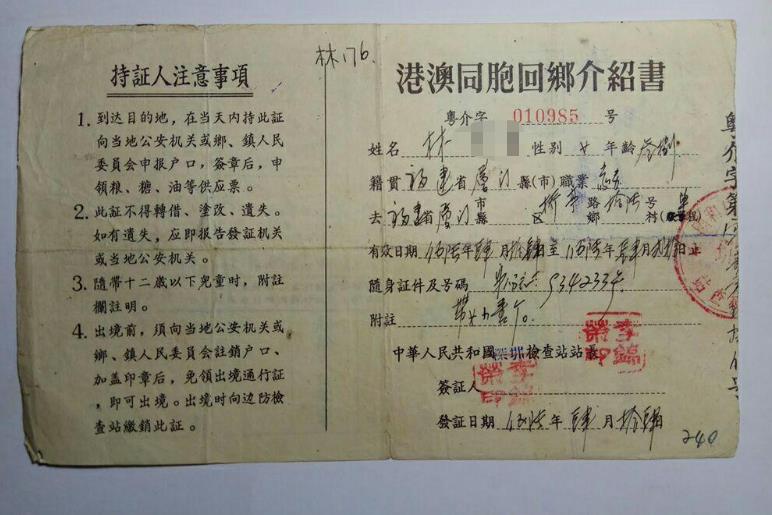 林176.
持証人注意事項
1. 到达目的地，在当天内持此証
向当地公安机关或鄉、鎮人民
委員会申报户口，簽章后，申
領粮、糖、油等供应票。
2. 此証不得轉借、塗改、遺失。
如有遺失，应即报告發証机关
或当地公安机关。
3. 隨帶十二歲以下兒童时，附註
欄註明。
4. 出境前，須向当地公安机关或
鄉、鎮人民委員会註銷户口、
加盖印章后，免領出境通行証
，即可出境。出境时向边防檢
查站繳銷此証。
港澳同胞回鄉介紹書
粤介字 010985 号
姓名 林 性別 女 年齡
籍貫 福建省厦门縣(市)職業
去 福建省厦门市縣 区 路鄉 拾柒号村
有效日期 伍柒年肆月 至伍柒年 月 日止
隨身証件及号碼 534233号
附註
中華人民共和國深圳檢查站站長
簽証人
發証日期 伍柒年肆月 日
李鎬
榮印
李鎬
榮印
粤介字第
240